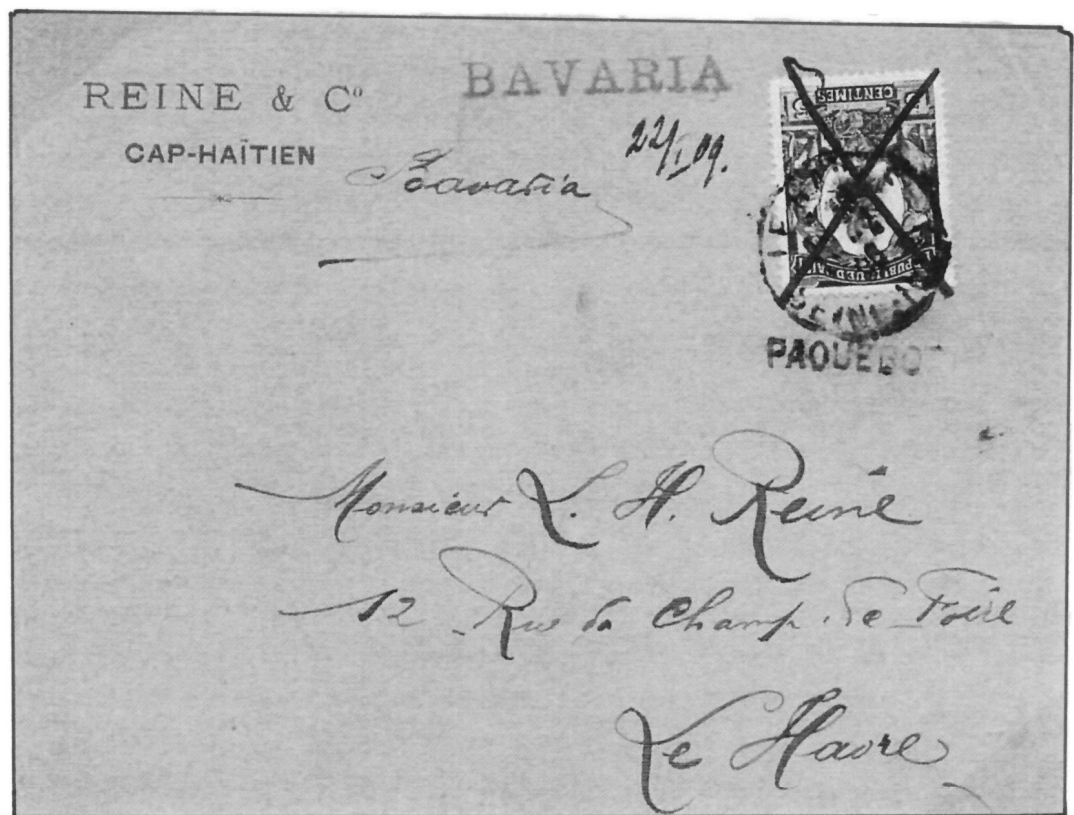 REINE & Cº
CAP-HAÏTIEN
BAVARIA
Bavaria
22/I 09.
5 CENTIMES 5
REPUBLIQUE D'HAITI
PAQUEBOT
Monsieur L. H. Reine
12 Rue du Champ de Foire
Le Havre